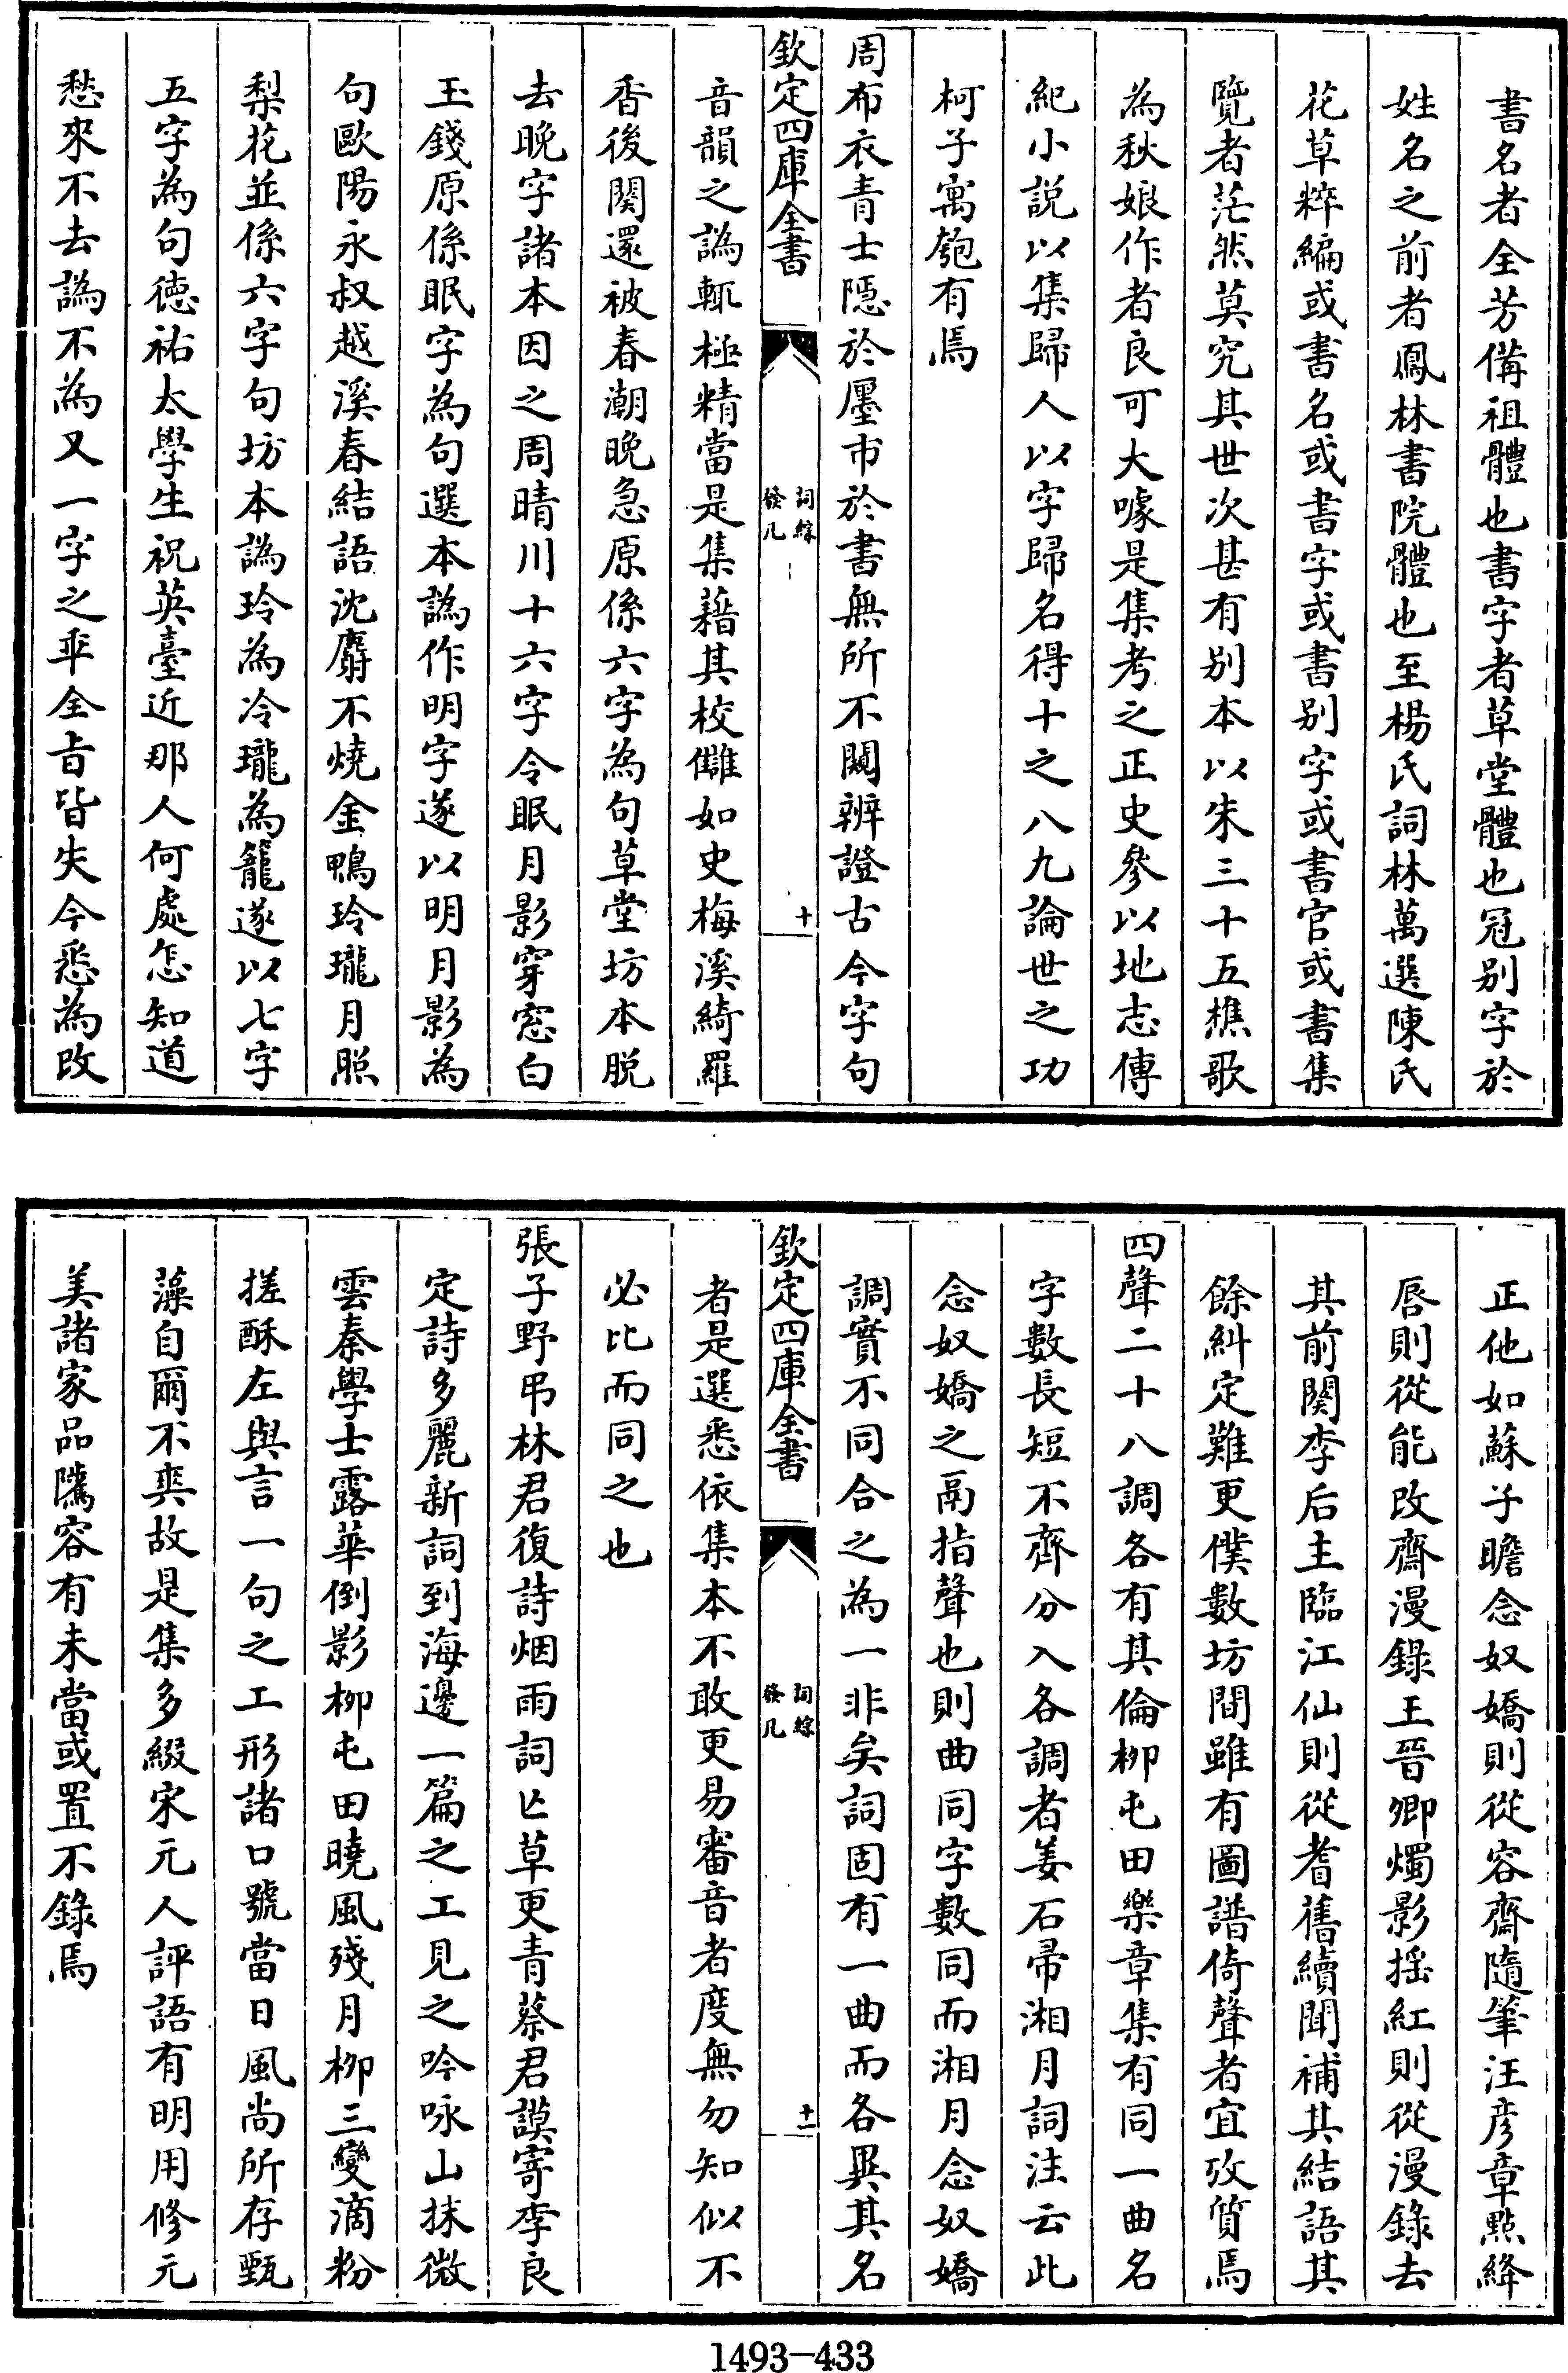 書名者全芳備祖體也書字者草堂體也冠别字於
姓名之前者鳳林書院體也至楊氏詞林萬選陳氏
花草粹編或書名或書字或書别字或書官或書集
覽者茫然莫究其世次甚有别本以朱三十五樵歌
為秋娘作者良可大噱是集考之正史參以地志傳
紀小說以集歸人以字歸名得十之八九論世之功
柯子寓匏有焉
周布衣青士隱於㕓市於書無所不闚辨證古今字句
欽定四庫全書
詞綜
發凡
十
音韻之譌輒極精當是集藉其校讎如史梅溪綺羅
香後闋還被春潮晚急原係六字為句草堂坊本脱
去晚字諸本因之周晴川十六字令眠月影穿窓白
玉錢原係眠字為句選本譌作明字遂以明月影為
句歐陽永叔越溪春結語沈麝不燒金鴨玲瓏月照
梨花並係六字句坊本譌玲為冷瓏為籠遂以七字
五字為句徳祐太學生祝英臺近那人何處怎知道
愁來不去譌不為又一字之乖全㫖皆失今悉為改
正他如蘇子瞻念奴嬌則從容齋隨筆汪彦章點絳
唇則從能改齋漫錄王晉卿燭影揺紅則從漫錄去
其前闋李后主臨江仙則從耆舊續聞補其結語其
餘糾定難更僕數坊間雖有圖譜倚聲者宜攷質焉
四聲二十八調各有其倫柳屯田樂章集有同一曲名
字數長短不齊分入各調者姜石帚湘月詞注云此
念奴嬌之鬲指聲也則曲同字數同而湘月念奴嬌
調實不同合之為一非矣詞固有一曲而各異其名
欽定四庫全書
詞綜
發凡
十一
者是選悉依集本不敢更易審音者度無勿知似不
必比而同之也
張子野弔林君復詩烟雨詞亡草更青蔡君謨寄李良
定詩多麗新詞到海邊一篇之工見之吟咏山抹微
雲秦學士露華倒影柳屯田曉風殘月柳三變滴粉
搓酥左與言一句之工形諸口號當日風尚所存甄
藻自爾不爽故是集多綴宋元人評語有明用修元
美諸家品隲容有未當或置不錄焉
1493-433